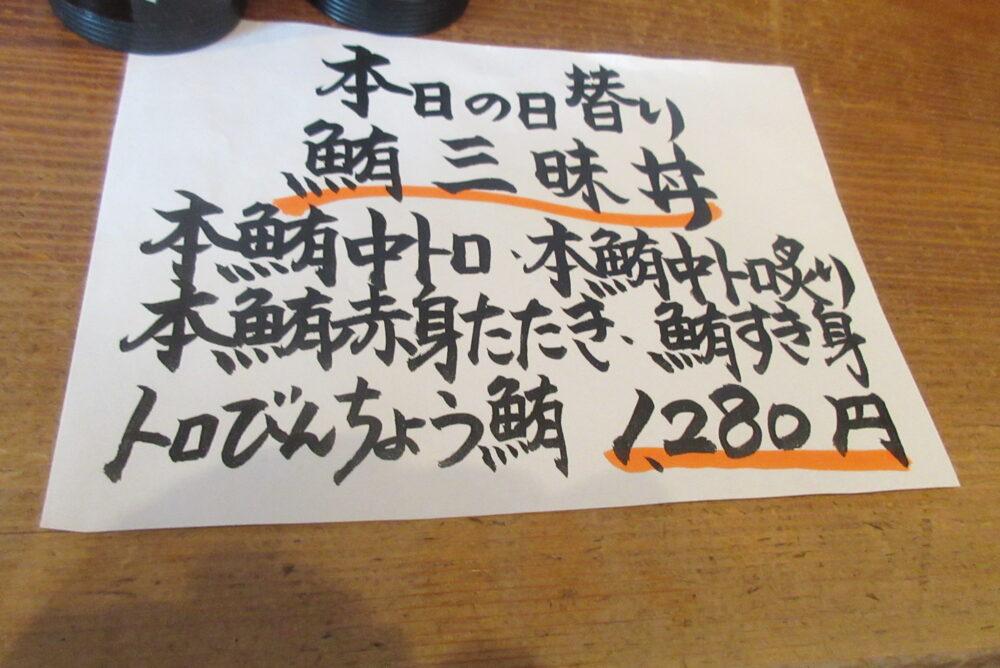 本日の日替り
鮪三昧丼
本鮪中トロ、本鮪中トロ炙り
本鮪赤身たたき、鮪すき身
トロびんちょう鮪 1,280円